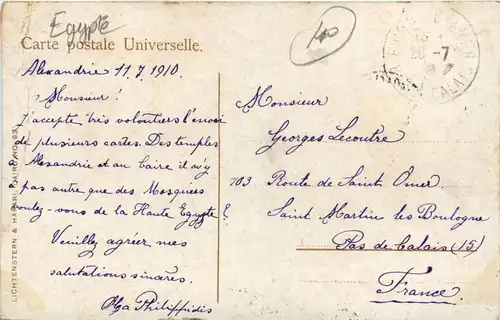 Egypte
40
Carte postale Universelle.
Alexandrie 11.7.1910.
Monsieur!
J'accepte très volontiers l'envoi
de plusieurs cartes. Des temples
Alexandrie et au Caire il n'y
pas autre que des Mosquées
voulez-vous de la Haute Egypte?
Veuillez agréer mes
salutations sincères.
Olga Philippidis
Monsieur
Georges Lecoutre
103 Route de Saint Omer
Saint Martin les Boulogne
Pas de Calais (15)
France.
20-7
CALAIS
LICHTENSTERN & HARARI, CAIRO